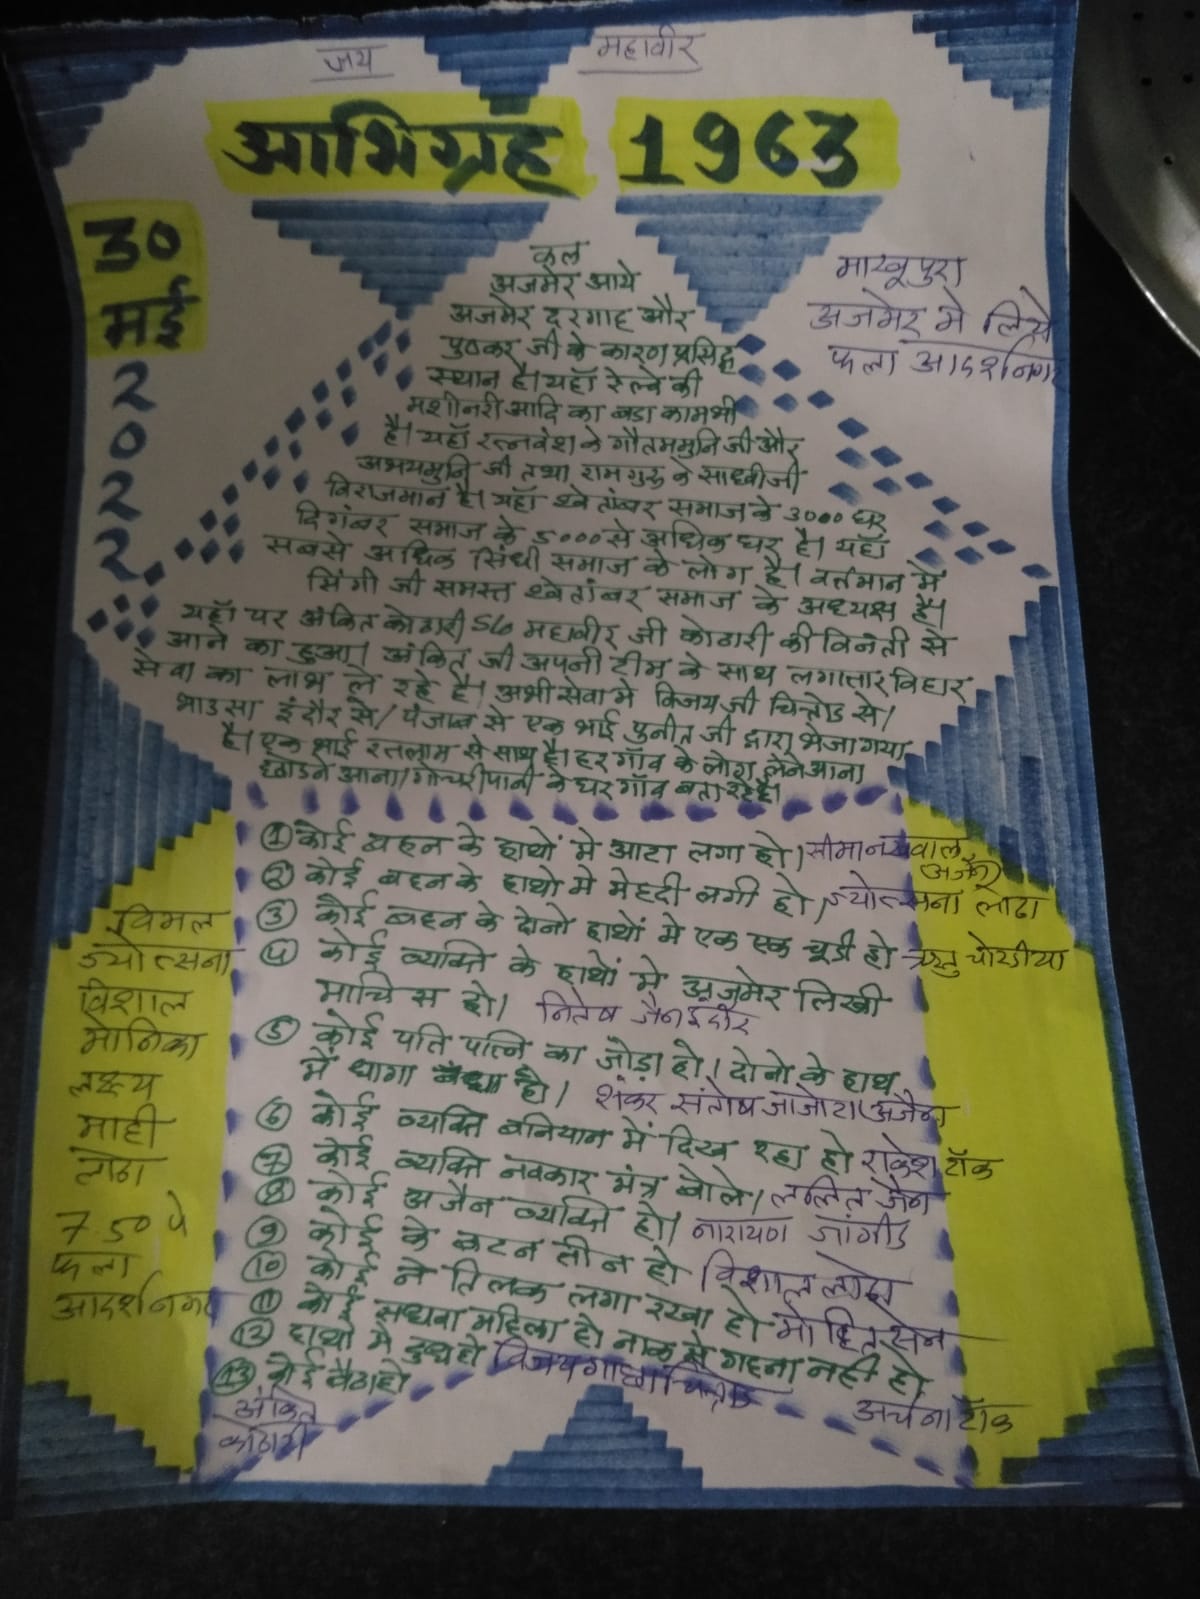 जय महावीर
आभिग्रह 1963
30
मई
2
0
2
2
माखूपुरा
अजमेर मे लिये
फला आदर्शनगर
कल
अजमेर आये
अजमेर दरगाह और
पुष्कर जी के कारण प्रसिद्ध
स्थान है। यहाँ रेल्वे की
मशीनरी आदि का बडा काम भी
है। यहाँ रत्नवंश के गौतममुनि जी और
अभयमुनि जी तथा रामगुरु के साध्वीजी
विराजमान है। यहाँ श्वेतांबर समाज के 3000 घर
दिगंबर समाज के 5000 से अधिक घर है। यहाँ
सबसे अधिक सिंधी समाज के लोग है। वर्तमान मे
सिंगी जी समस्त श्वेतांबर समाज के अध्यक्ष है।
यहाँ पर अंकित कोठारी S/o महावीर जी कोठारी की विनंती से
आने का हुआ। अंकित जी अपनी टीम के साथ लगातार विहार
सेवा का लाभ ले रहे है। अभी सेवा मे विजय जी चित्तोड से/
भाउसा इंदौर से/ पंजाब से एक भाई पुनीत जी द्वारा भेजा गया
है। एक भाई रतलाम से साथ है। हर गाँव के लोग लेने आना
छोडने आना/ गोचरी पानी के घर गाँव बता रहे है।
① कोई बहन के हाथों मे आटा लगा हो। सीमा नखवाल
अजमेर
② कोई बहन के हाथो मे मेहदी लगी हो। ज्योत्सना लोढा
③ कोई बहन के दोनो हाथों मे एक एक चूडी हो ऋतु चोरडीया
④ कोई व्यक्ति के हाथों मे अजमेर लिखी
माचिस हो। नितेष जैन इंदौर
⑤ कोई पति पत्नि का जोड़ा हो। दोनो के हाथ
में धागा बंधा हो। शंकर संतोष जाजोटा (अजैन)
⑥ कोई व्यक्ति बनियान में दिख रहा हो राकेश टॉक
⑦ कोई व्यक्ति नवकार मंत्र बोले। ललित जैन
⑧ कोई अजैन व्यक्ति हो। नारायण जांगीड
⑨ कोई के बटन तीन हो विशाल लोढा
⑩ कोई ने तिलक लगा रखा हो मोहित सेन
⑪ कोई सधवा महिला हो नाक मे गहना नही हो
अर्चना टॉक
⑫ हाथों मे दुध हो विजय गांधी चित्तोड
⑬ कोई बैठा हो
अंकित
कोठारी
विमल
ज्योत्सना
विशाल
मोनिका
लक्ष्य
माही
लोढा
7.50 पे
फला
आदर्शनगर